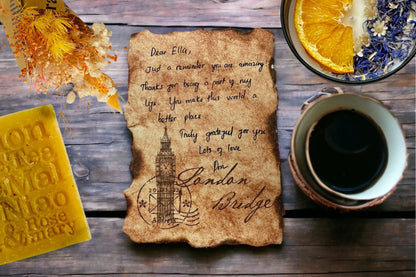 Dear Ella,
Just a reminder you are amazing
Thanks for being a part of my
life. You make this world a
better place
Truly grateful for you
Lots of love
London
Bridge
& rose
mary